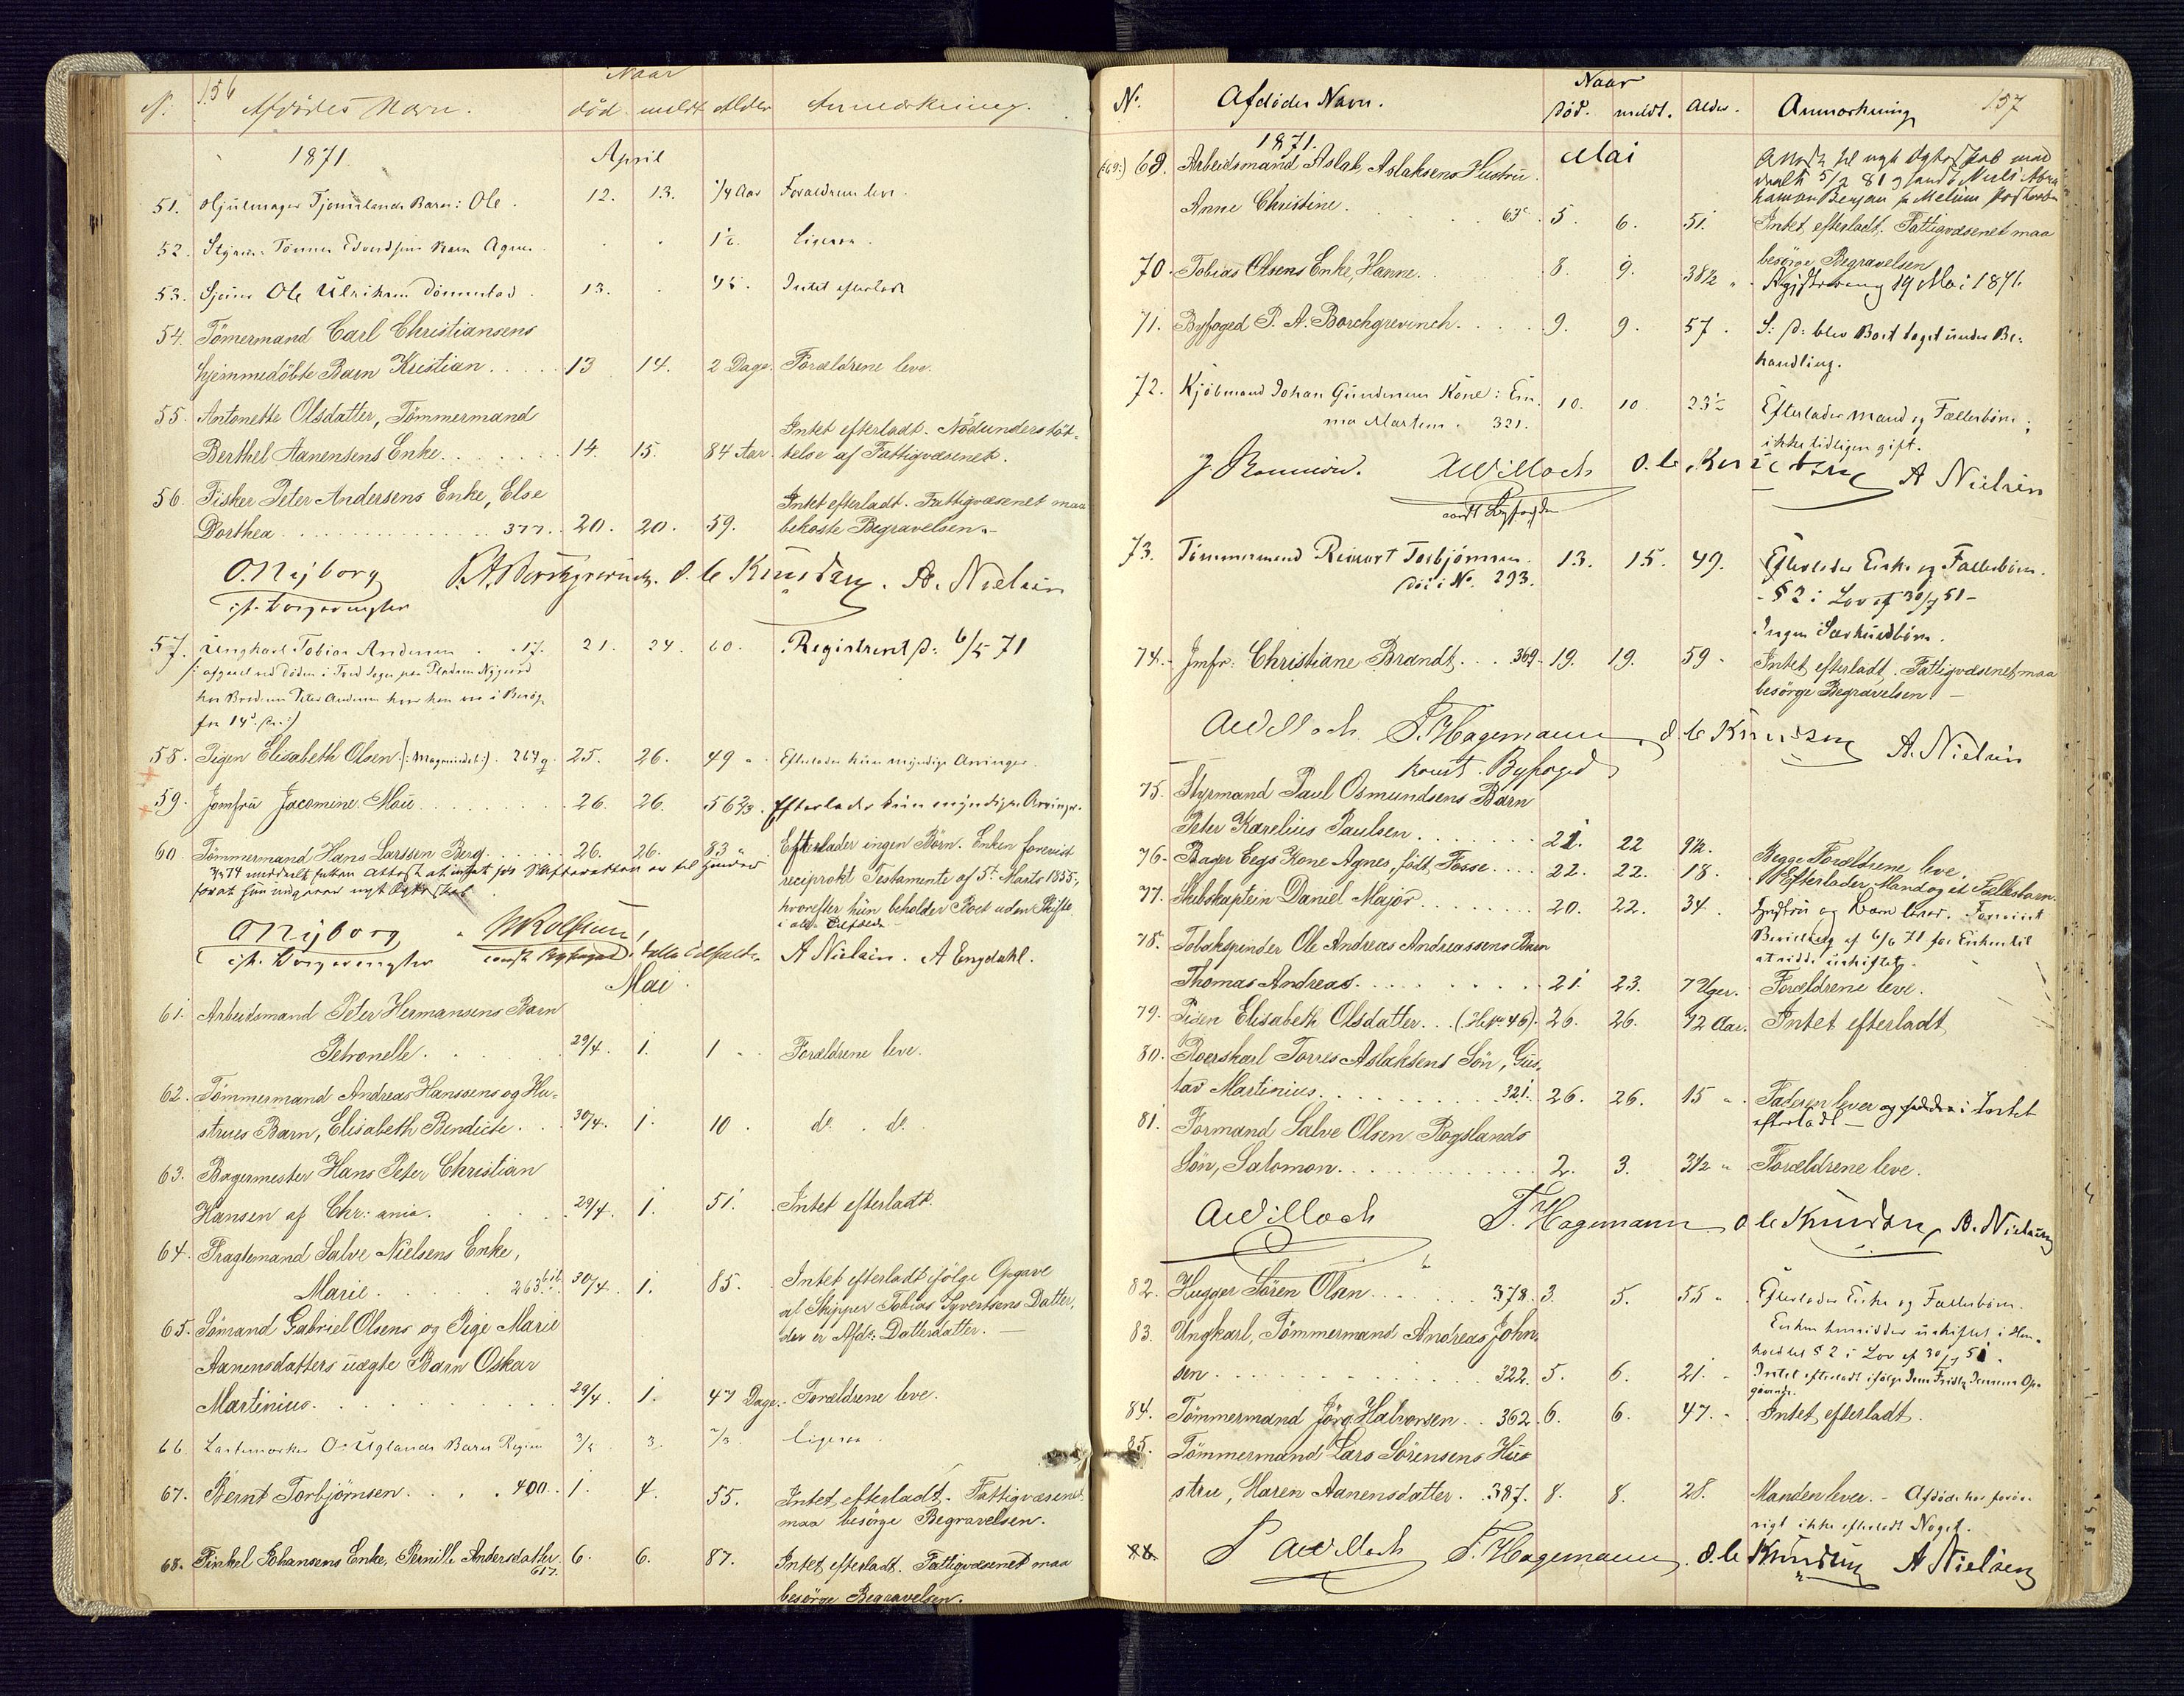 156
Naar
N. Afdödes Navn. död. meldt Alder Anmærkning.
1871. April
51. Hjulmager Tjomslands Barn: Ole. 12. 13. 1/4 Aar Forældrene leve.
52. Styrm: Tönnes Edvardsens Barn Agnes. Ligesaa.
53. Sjöm: Ole Ulriksen Dönnestad. 13. 45. Intet efterladt
54. Tömermand Carl Christiansens
hjemmedöbte Barn Kristian. 13 14. 2 Dage. Forældrene leve.
55. Antonette Olsdatter, Tömmermand
Berthel Aanensens Enke. 14. 15. 84 Aar. Intet efterladt. Nödunderstöt-
telse af Fattigvæsenet.
56. Fisker Peter Andersens Enke, Else
Dorthea 377. 20. 20. 59. Intet efterladt. Fattigvæsenet maa
bekoste Begravelsen.
O. Nyborg P. A. Borchgrevinck. O. C. Knudsen. A. Nielsen
57. Ungkarl Tobias Andersen 21. 24. 60. Registreret p: 6/5 71
hos Broderen Peter Andersen hvor han var i Besög
58. Pigen Elisabeth Olsen 267 g. 25. 26. 49 Efterlader kun myndige Arvinger.
59. Jomfru Jacomine Mou 26. 26. 56 2/3. Efterlader kun myndige Arvinger.
60. Tömmermand Hans Larssen Berg. 26. 26. 83 Efterlader ingen Börn. Enken foreviist
reciprokt Testamente af 5te Marts 1855,
hvorefter hun beholder Boet uden Skifte
O. Nyborg
A Nielsen. A Engdahl.
Mai.
61. Arbeidsmand Peter Hermansens Barn
Petronelle. 29/4. 1. 1 Forældrene leve.
62. Tömmermand Andreas Hanssens og Hu-
strues Barn, Elisabeth Bendicte. 30/4. 1. 10. do. do.
63. Bagermester Hans Peter Christian
Hansen af Chr:ania. 29/4. 1. 51. Intet efterladt.
64. Fragtemand Salve Nielsens Enke,
Marie 263 30/4. 1. 85. Intet efterladt ifölge Opgave
af Skipper Tobias Syvertsens Datter,
der er Afdes Datterdatter.
65. Sömand Gabriel Olsens og Pige Marie
Aanensdatters uægte Barn Oskar
Martinius. 29/4. 1. 47 Dage. Forældrene leve.
66. O. Uglands Barn 3. Ligesaa
67. Bernt Torbjörnsen. 400. 1. 4. 55. Intet efterladt. Fattigvæsenet
maa besörge Begravelsen.
68. Finkel Johansens Enke, Pernille Andersdatter 617. 6. 6. 87. Intet efterladt. Fattigvæsenet maa
besörge Begravelsen.
157
Naar
No. Afdödes Navn. död. meldt. Alder. Anmærkning
1871. Mai
(69:) 69. Arbeidsmand Aslak Aslaksens Hustru
Anne Christine. 63 5. 6. 51. Intet efterladt. Fattigvæsenet maa
besörge Begravelsen
70. Tobias Olsens Enke, Hanne. 8. 9. 38 1/2 Registrering 19 Mai 1871.
71. Byfoged P. A. Borchgrevinck. 9. 9. 57. S: D: blev Boet taget under Be-
handling.
72. Kjöbmand Johan Gundersens Kone: Em-
ma Martens. 321. 10. 10. 23 1/2 Efterlader Mand og Fællesbörn;
ikke tidligere gift.
AWilloch O. C. Knudsen A Nielsen
const Byfoged
73. Tömmermand Reinert Torbjörnsen. 13. 15. 49. Efterlader Enke og Fællesbörn.
död i No. 293. § 2 i Lov af 30/7 51
Ingen Særkuldbörn.
74. Jmfr: Christiane Brandt. 369. 19. 19. 59 Intet efterladt. Fattigvæsenet maa
besörge Begravelsen
AWilloch F. Hagemann O. C. Knudsen A. Nielsen
konst. Byfoged
75. Styrmand Paul Osmundsens Barn
Peter Karelius Paulsen. 21. 22 9/12. Begge Forældrene leve.
76. Bager Eegs Kone Agnes, födt Fosse. 22. 22. 18. Efterlader Mand og et Fællesbarn.
77. Skibskaptein Daniel Major 20. 22. 34. Hustru og Barn lever. Foreviist
Bevilling af 6/6 71 for Enken til
at sidde uskiftet.
78. Tobakspinder Ole Andreas Andreassens Barn
Thomas Andreas. 21. 23. 7 Uger. Forældrene leve.
79. Pigen Elisabeth Olsdatter. 26. 26. 72 Aar. Intet efterladt
80. Roerskarl Torres Aslaksens Sön, Gus-
tav Martinius. 321. 26. 26. 15 Faderen lever
efterladt
81. Formand Salve Olsen Rogslands
Sön, Salomon. 2. 3. 3 1/2 Forældrene leve.
AWilloch F. Hagemann O. C. Knudsen A. Nielsen
82. Hugger Sören Olsen 378. 3. 5. 55 Efterlader Enke og Fællesbörn.
Enken hensidder uskiftet i Hen-
hold til § 2 i Lov af 30/7 51.
83. Ungkarl, Tömmermand Andreas John-
sen 322. 5. 6. 21. Intet efterladt ifölge
84. Tömmermand Jörg. Halvorsen. 362. 6. 6. 47. Intet efterladt.
85. Tömmermand Lars Sörensens Hu-
stru, Maren Aanensdatter. 387. 8. 8. 28. Manden lever. Afdöde har foröv-
rigt ikke efterladt Noget.
AWilloch F. Hagemann. O. C. Knudsen A Nielsen